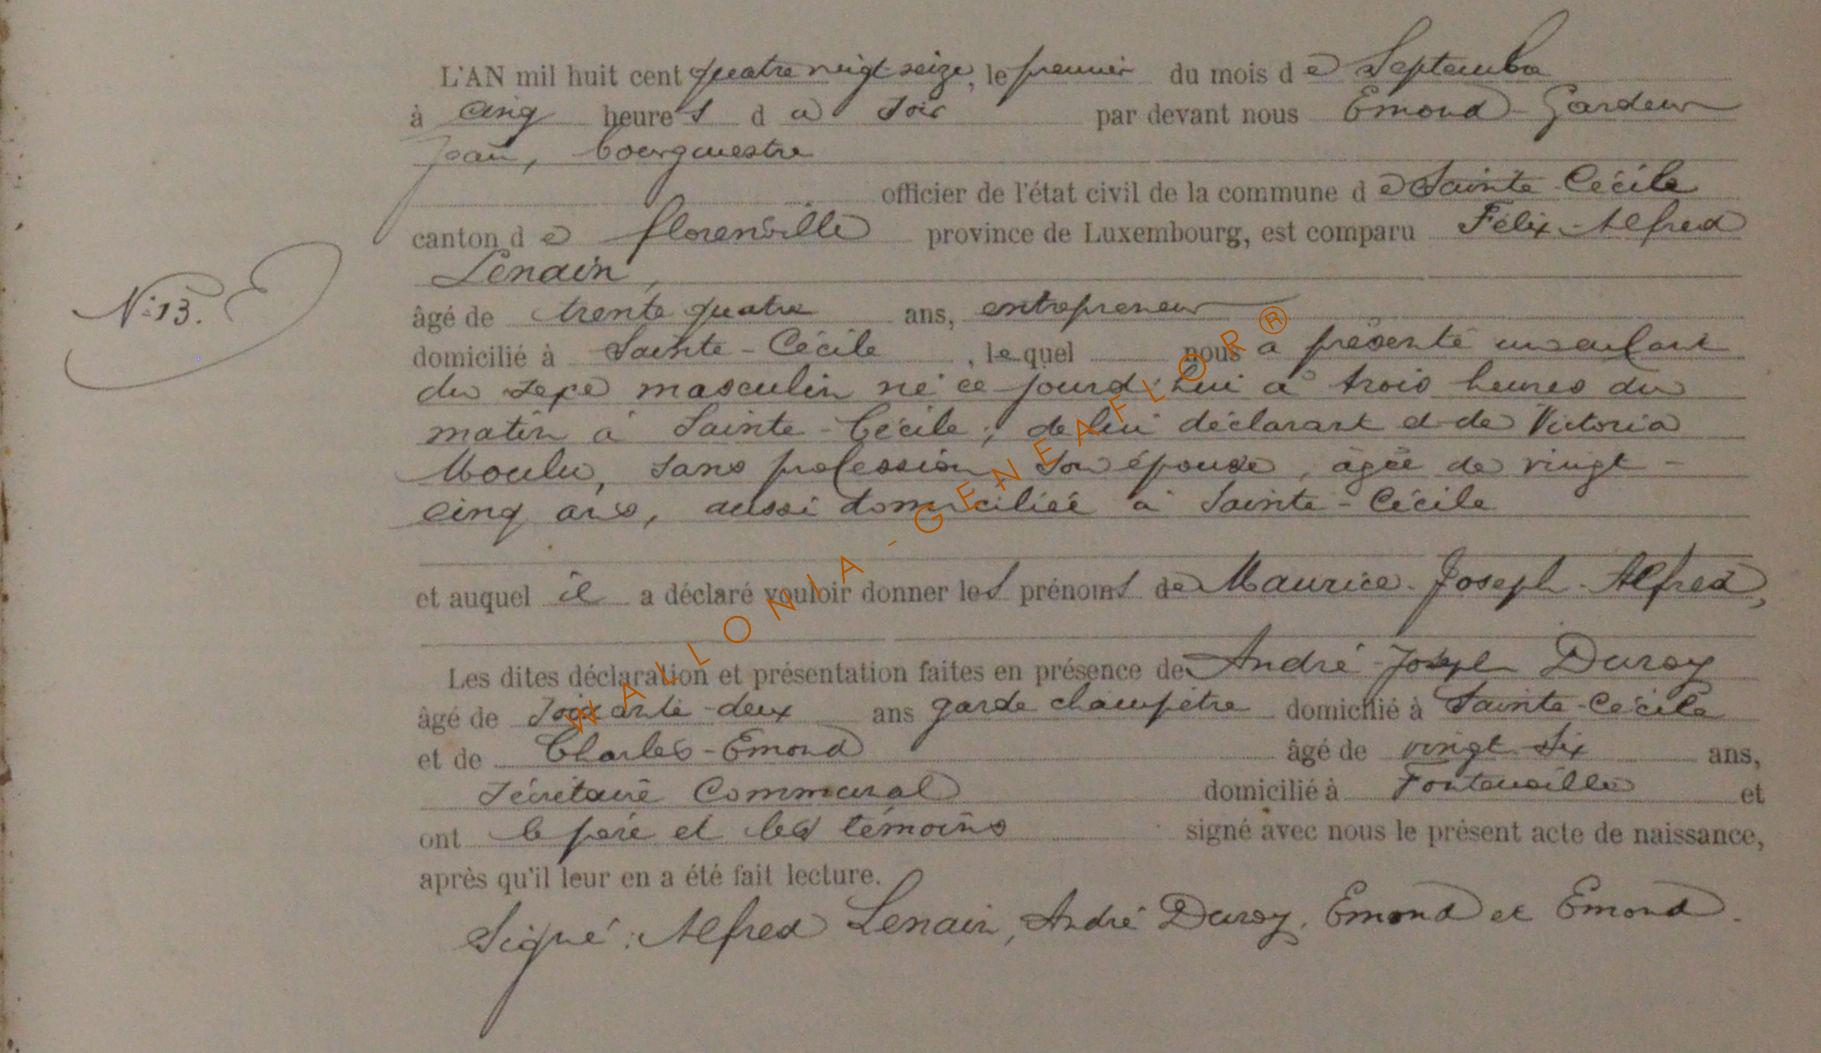 L'AN mil huit cent quatre vingt seize, le premier du mois de Septembre
à cinq heures du soir par devant nous Emond-Gardeur
Jean, bourgmestre
officier de l'état civil de la commune de Sainte-Cécile
canton de florenville province de Luxembourg, est comparu Félix-Alfred
Lenain,
N: 13.
âgé de trente quatre ans, entrepreneur
domicilié à Sainte-Cécile, lequel nous a présenté un enfant
du sexe masculin né ce jourd'hui à trois heures du
matin à Sainte-Cécile, de lui déclarant et de Victoria
Moulu, sans profession son épouse, âgée de vingt-
cinq ans, aussi domiciliée à Sainte-Cécile
et auquel il a déclaré vouloir donner les prénoms de Maurice-Joseph-Alfred,
Les dites déclaration et présentation faites en présence de André-Joseph Duroy
âgé de soixante-deux ans garde champêtre domicilié à Sainte-Cécile
et de Charles-Emond âgé de vingt six ans,
Sécrétaire Communal domicilié à Fontenoille et
ont le père et les témoins signé avec nous le présent acte de naissance,
après qu'il leur en a été fait lecture.
Signé: Alfred Lenain, André Duroy, Emond et Emond.
WALLONIA-GENEAFLOR®